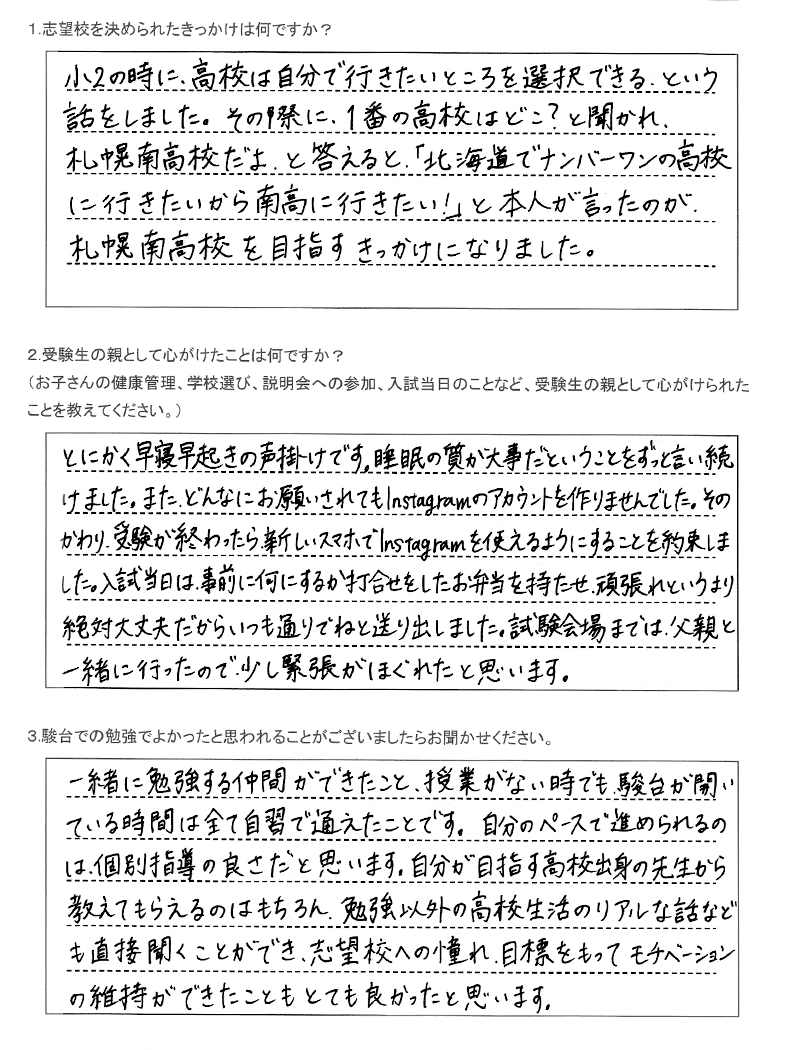 1.志望校を決められたきっかけは何ですか？
小2の時に、高校は自分で行きたいところを選択できる、という
話をしました。その際に、1番の高校はどこ？と聞かれ、
札幌南高校だよ、と答えると、「北海道でナンバーワンの高校
に行きたいから南高に行きたい！」と本人が言ったのが、
札幌南高校を目指すきっかけになりました。
2.受験生の親として心がけたことは何ですか？
（お子さんの健康管理、学校選び、説明会への参加、入試当日のことなど、受験生の親として心がけられた
ことを教えてください。）
とにかく早寝早起きの声掛けです。睡眠の質が大事だということをずっと言い続
けました。また、どんなにお願いされてもInstagramのアカウントを作りませんでした。その
かわり、受験が終わったら、新しいスマホでInstagramを使えるようにすることを約束しま
した。入試当日は、事前に何にするか打合せをしたお弁当を持たせ、頑張れというより
絶対大丈夫だからいつも通りでねと送り出しました。試験会場までは、父親と
一緒に行ったので、少し緊張がほぐれたと思います。
3.駿台での勉強でよかったと思われることがございましたらお聞かせください。
一緒に勉強する仲間ができたこと、授業がない時でも、駿台が開い
ている時間は全て自習で通えたことです。自分のペースで進められるの
は、個別指導の良さだと思います。自分が目指す高校出身の先生から
教えてもらえるのはもちろん、勉強以外の高校生活のリアルな話など
も直接聞くことができ、志望校への憧れ、目標をもってモチベーション
の維持ができたこともとても良かったと思います。